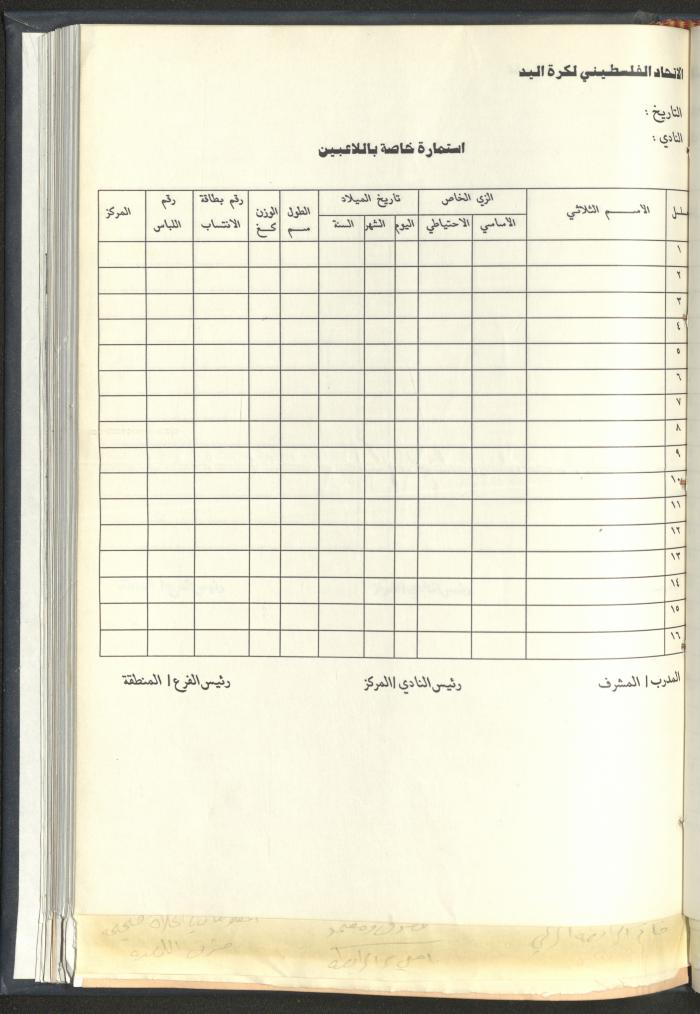 الاتحاد الفلسطيني لكرة اليد
التاريخ :
النادي :
استمارة خاصة باللاعبين
الاسم الثلاثي الزي الخاص تاريخ الميلاد الطول سم الوزن كغ رقم بطاقة الانتساب رقم اللباس المركز
الأساسي الاحتياطي اليوم الشهر السنة
١
٢
٣
٤
٥
٦
٧
٨
٩
١٠
١١
١٢
١٣
١٤
١٥
١٦
المدرب / المشرف رئيس النادي / المركز رئيس الفرع / المنطقة